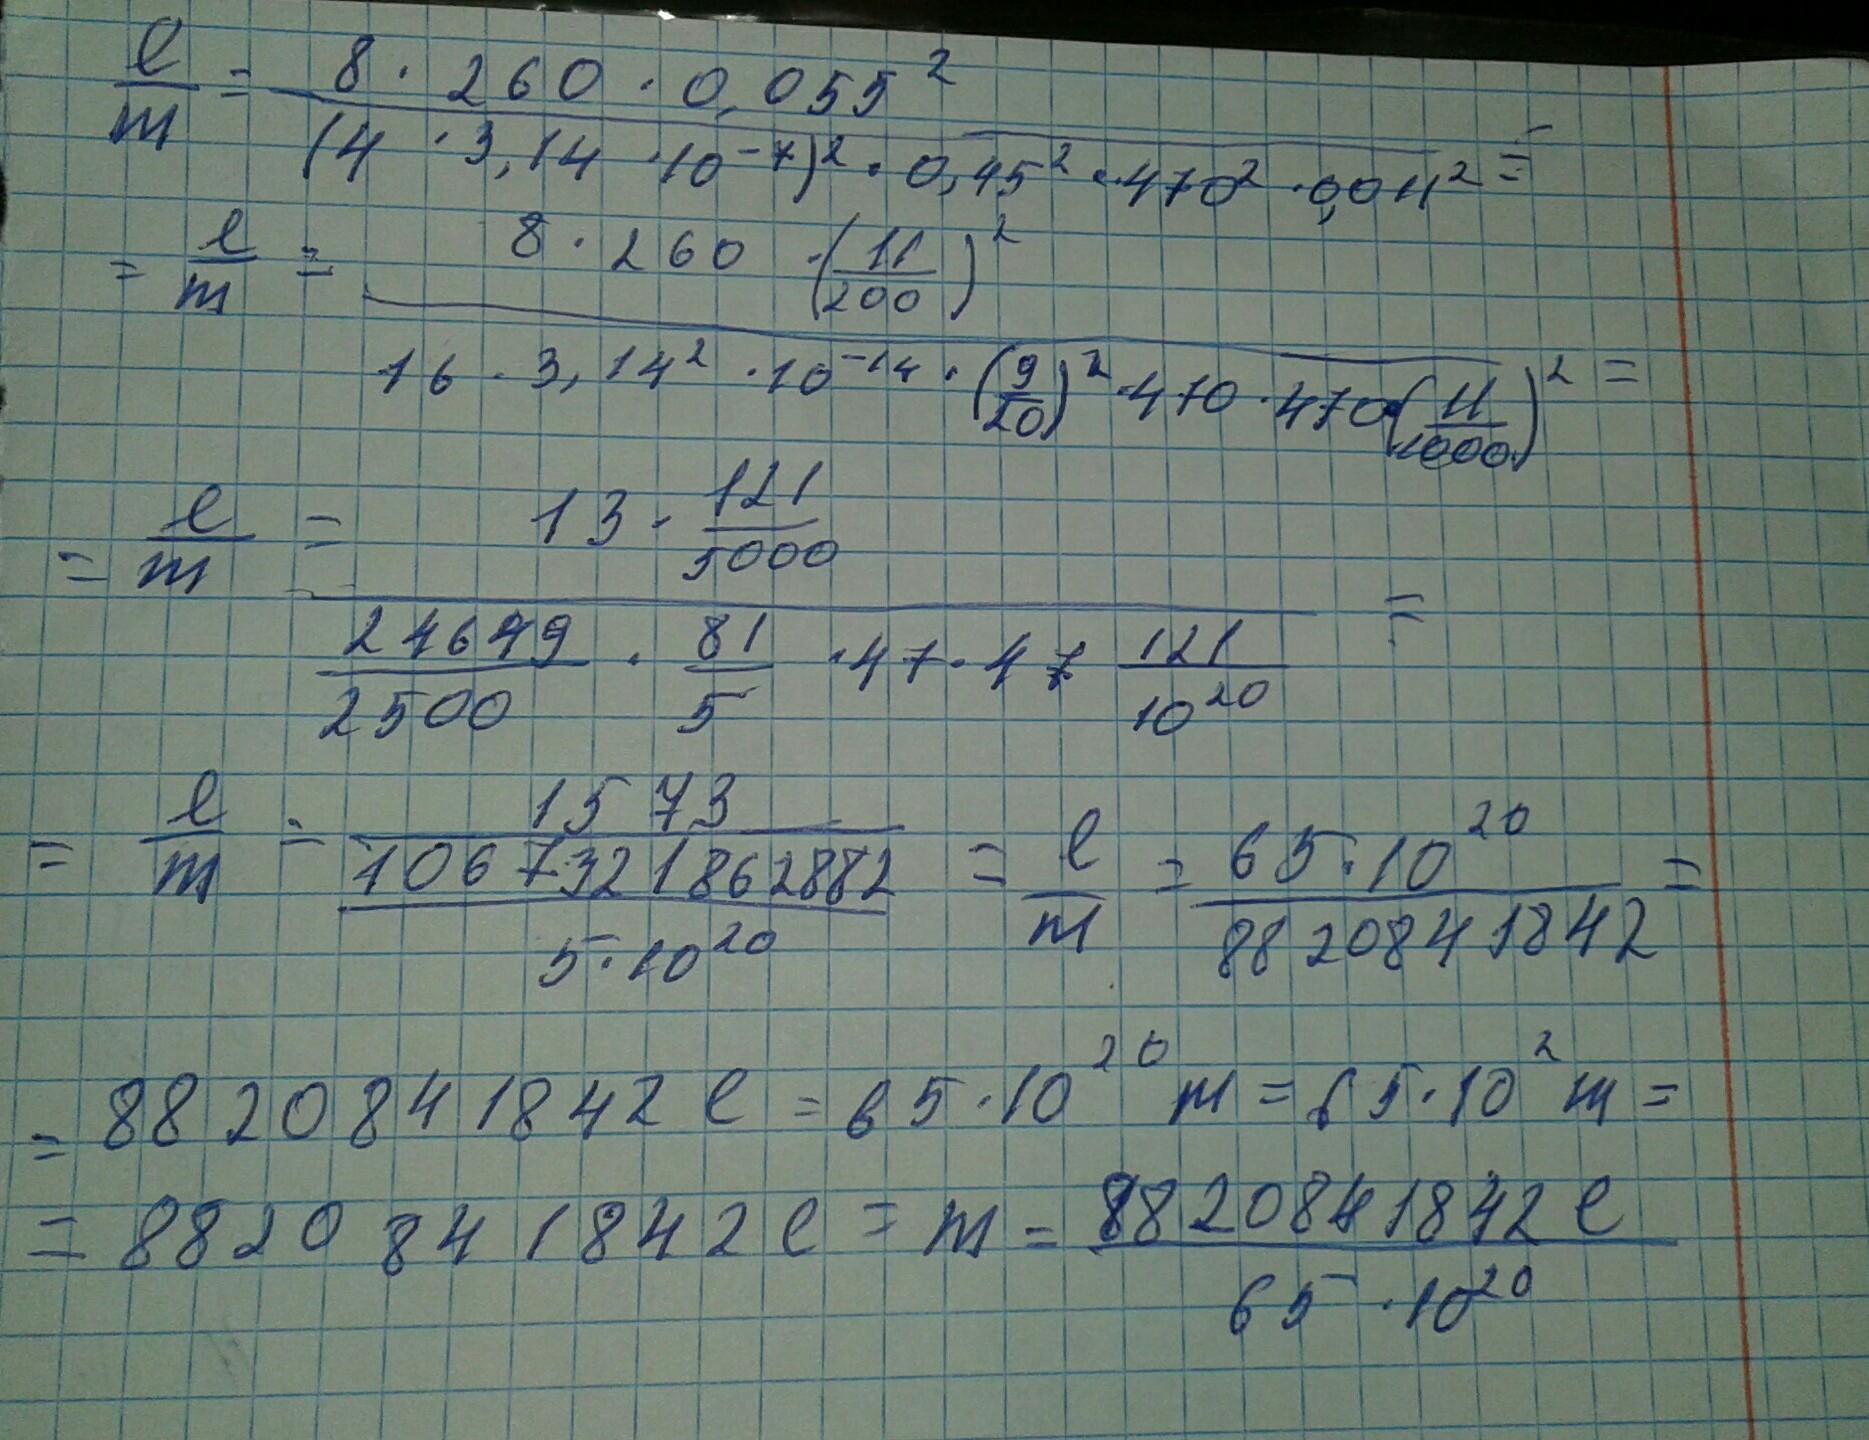 e/m = 8 · 260 · 0,055² / (4 · 3,14 · 10⁻⁷)² · 0,45² · 470² · 0,011² =
= e/m = 8 · 260 · (11/200)² / 16 · 3,14² · 10⁻¹⁴ · (9/20)² · 470 · 470 (11/1000)² =
= e/m = 13 · 121/5000 / 24649/2500 · 81/5 · 47 · 47 121/10²⁰ =
= e/m = 1573 / 1067321862882 / 5 · 10²⁰ = e/m = 65 · 10²⁰ / 8820841842 =
= 8820841842 e = 65 · 10²⁰ m = 65 · 10² m =
= 8820841842 e = m = 8820841842 e / 65 · 10²⁰